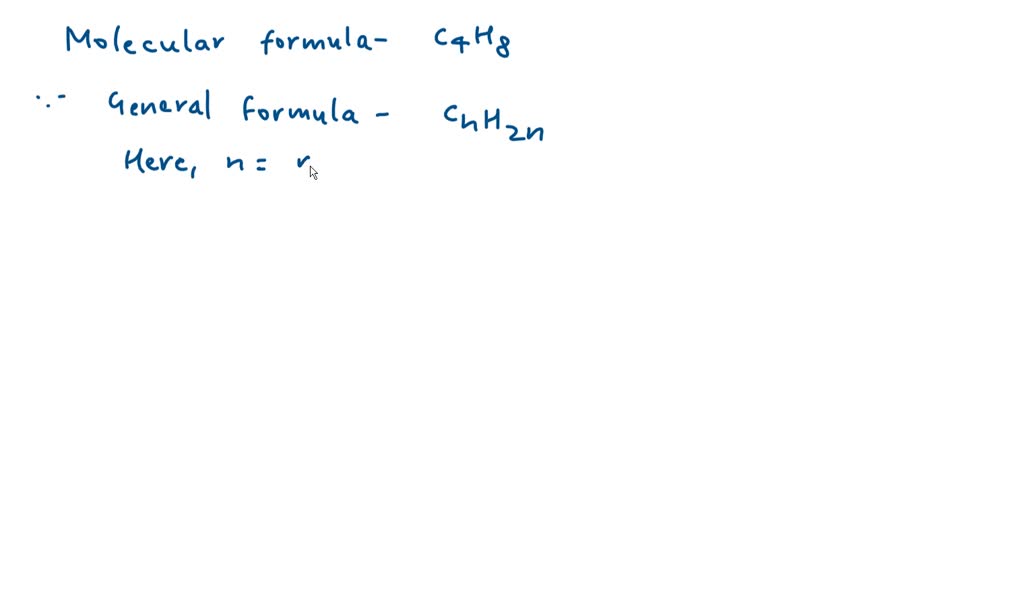 Molecular formula- C4H8
∵- General formula - CnH2n
Here, n =